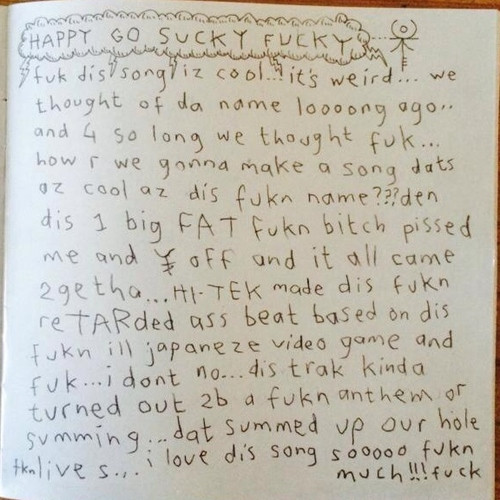 HAPPY GO SUCKY FUCKY
fuk dis song iz cool..! it's weird... we
thought of da name loooong ago..
and 4 so long we thought fuk...
how r we gonna make a song dats
az cool az dis fukn name???den
dis 1 big FAT fukn bitch pissed
me and ¥ off and it all came
2getha... HI-TEK made dis fukn
reTARded ass beat based on dis
fukn ill japaneze video game and
fuk...i dont no... dis trak kinda
turned out 2b a fukn anthem or
summing... dat summed up our hole
fkn lives... i love dis song sooooo fukn
much!!! fuck